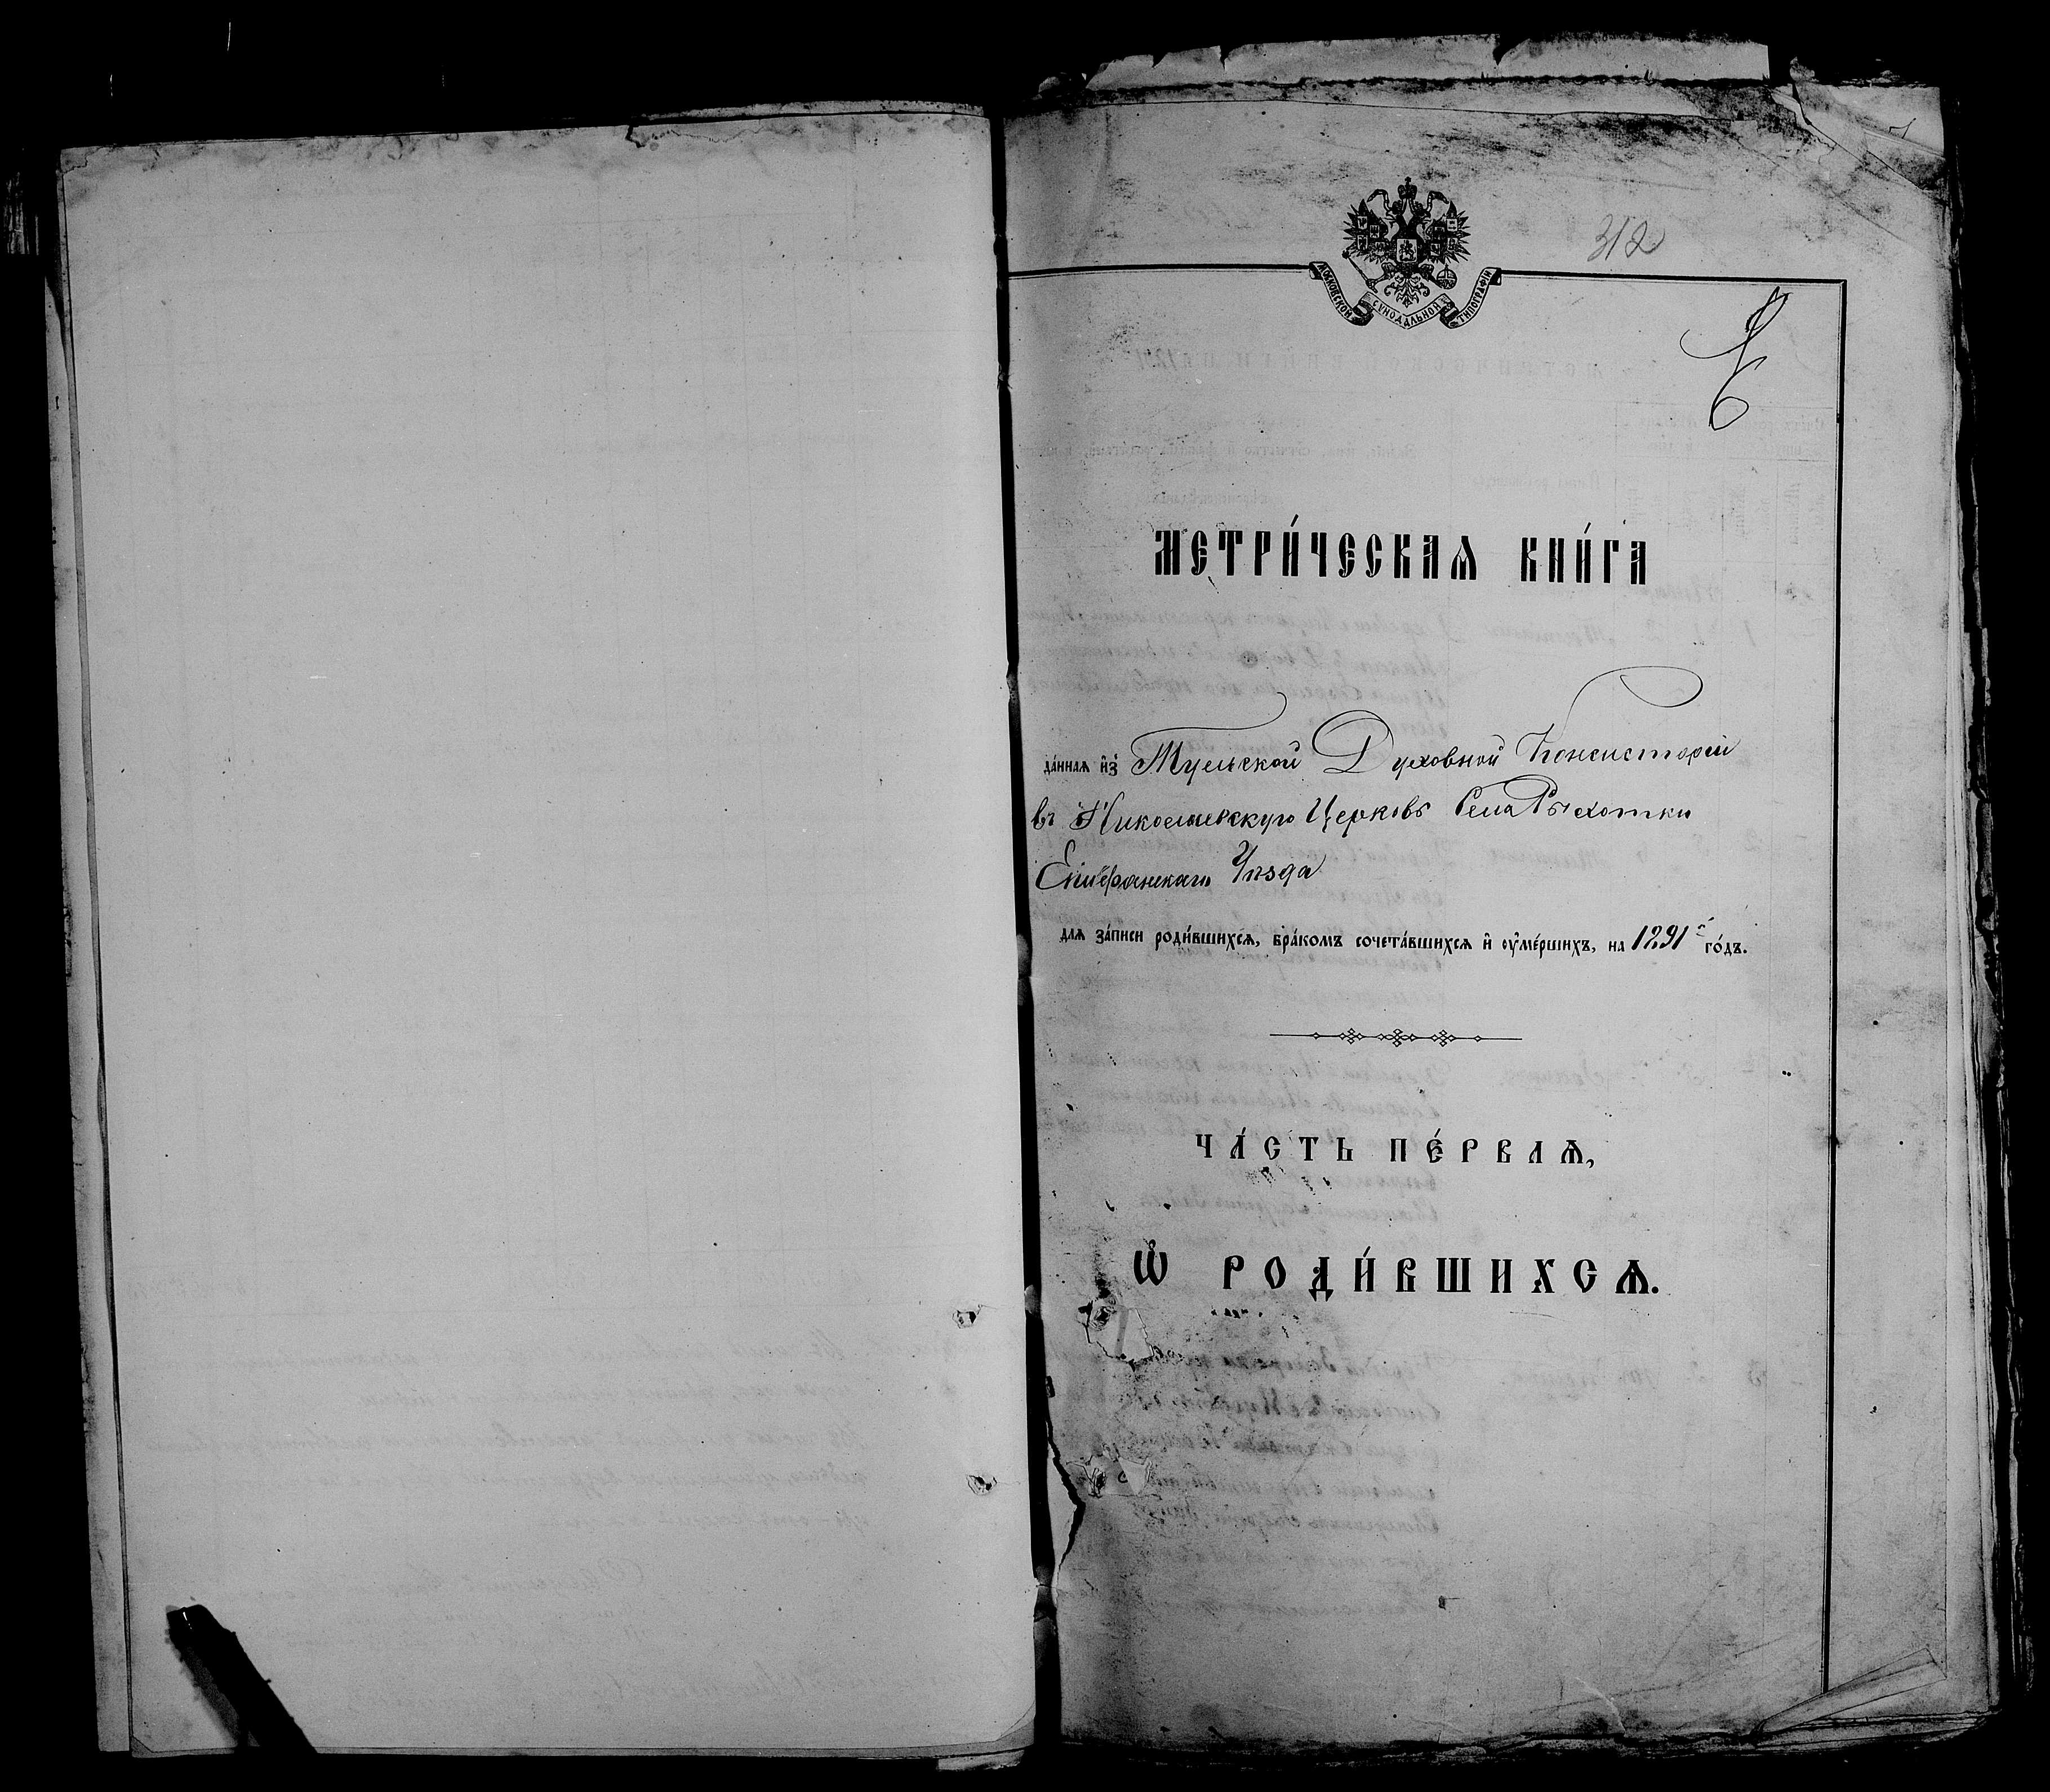 312
МОСКОВСКОЙ СѴНОДАЛЬНОЙ ТИПОГРАФІИ
МЕТРИ́ЧЕСКАѦ КНИ́ГА
да́нная и҆з̾ Тульской Духовной Консисторіи
въ Николаевскую Церковь Села Рыхотки
Епифанскаго Уѣзда
для за́писи роди́вшихся, бра́комъ сочета́вшихся и҆ ᲂу҆ме́ршихъ, на 1891й го́дъ.
ЧА́СТЬ ПЕ́РВАѦ,
Ѽ РОДИ́ВШИХСѦ.